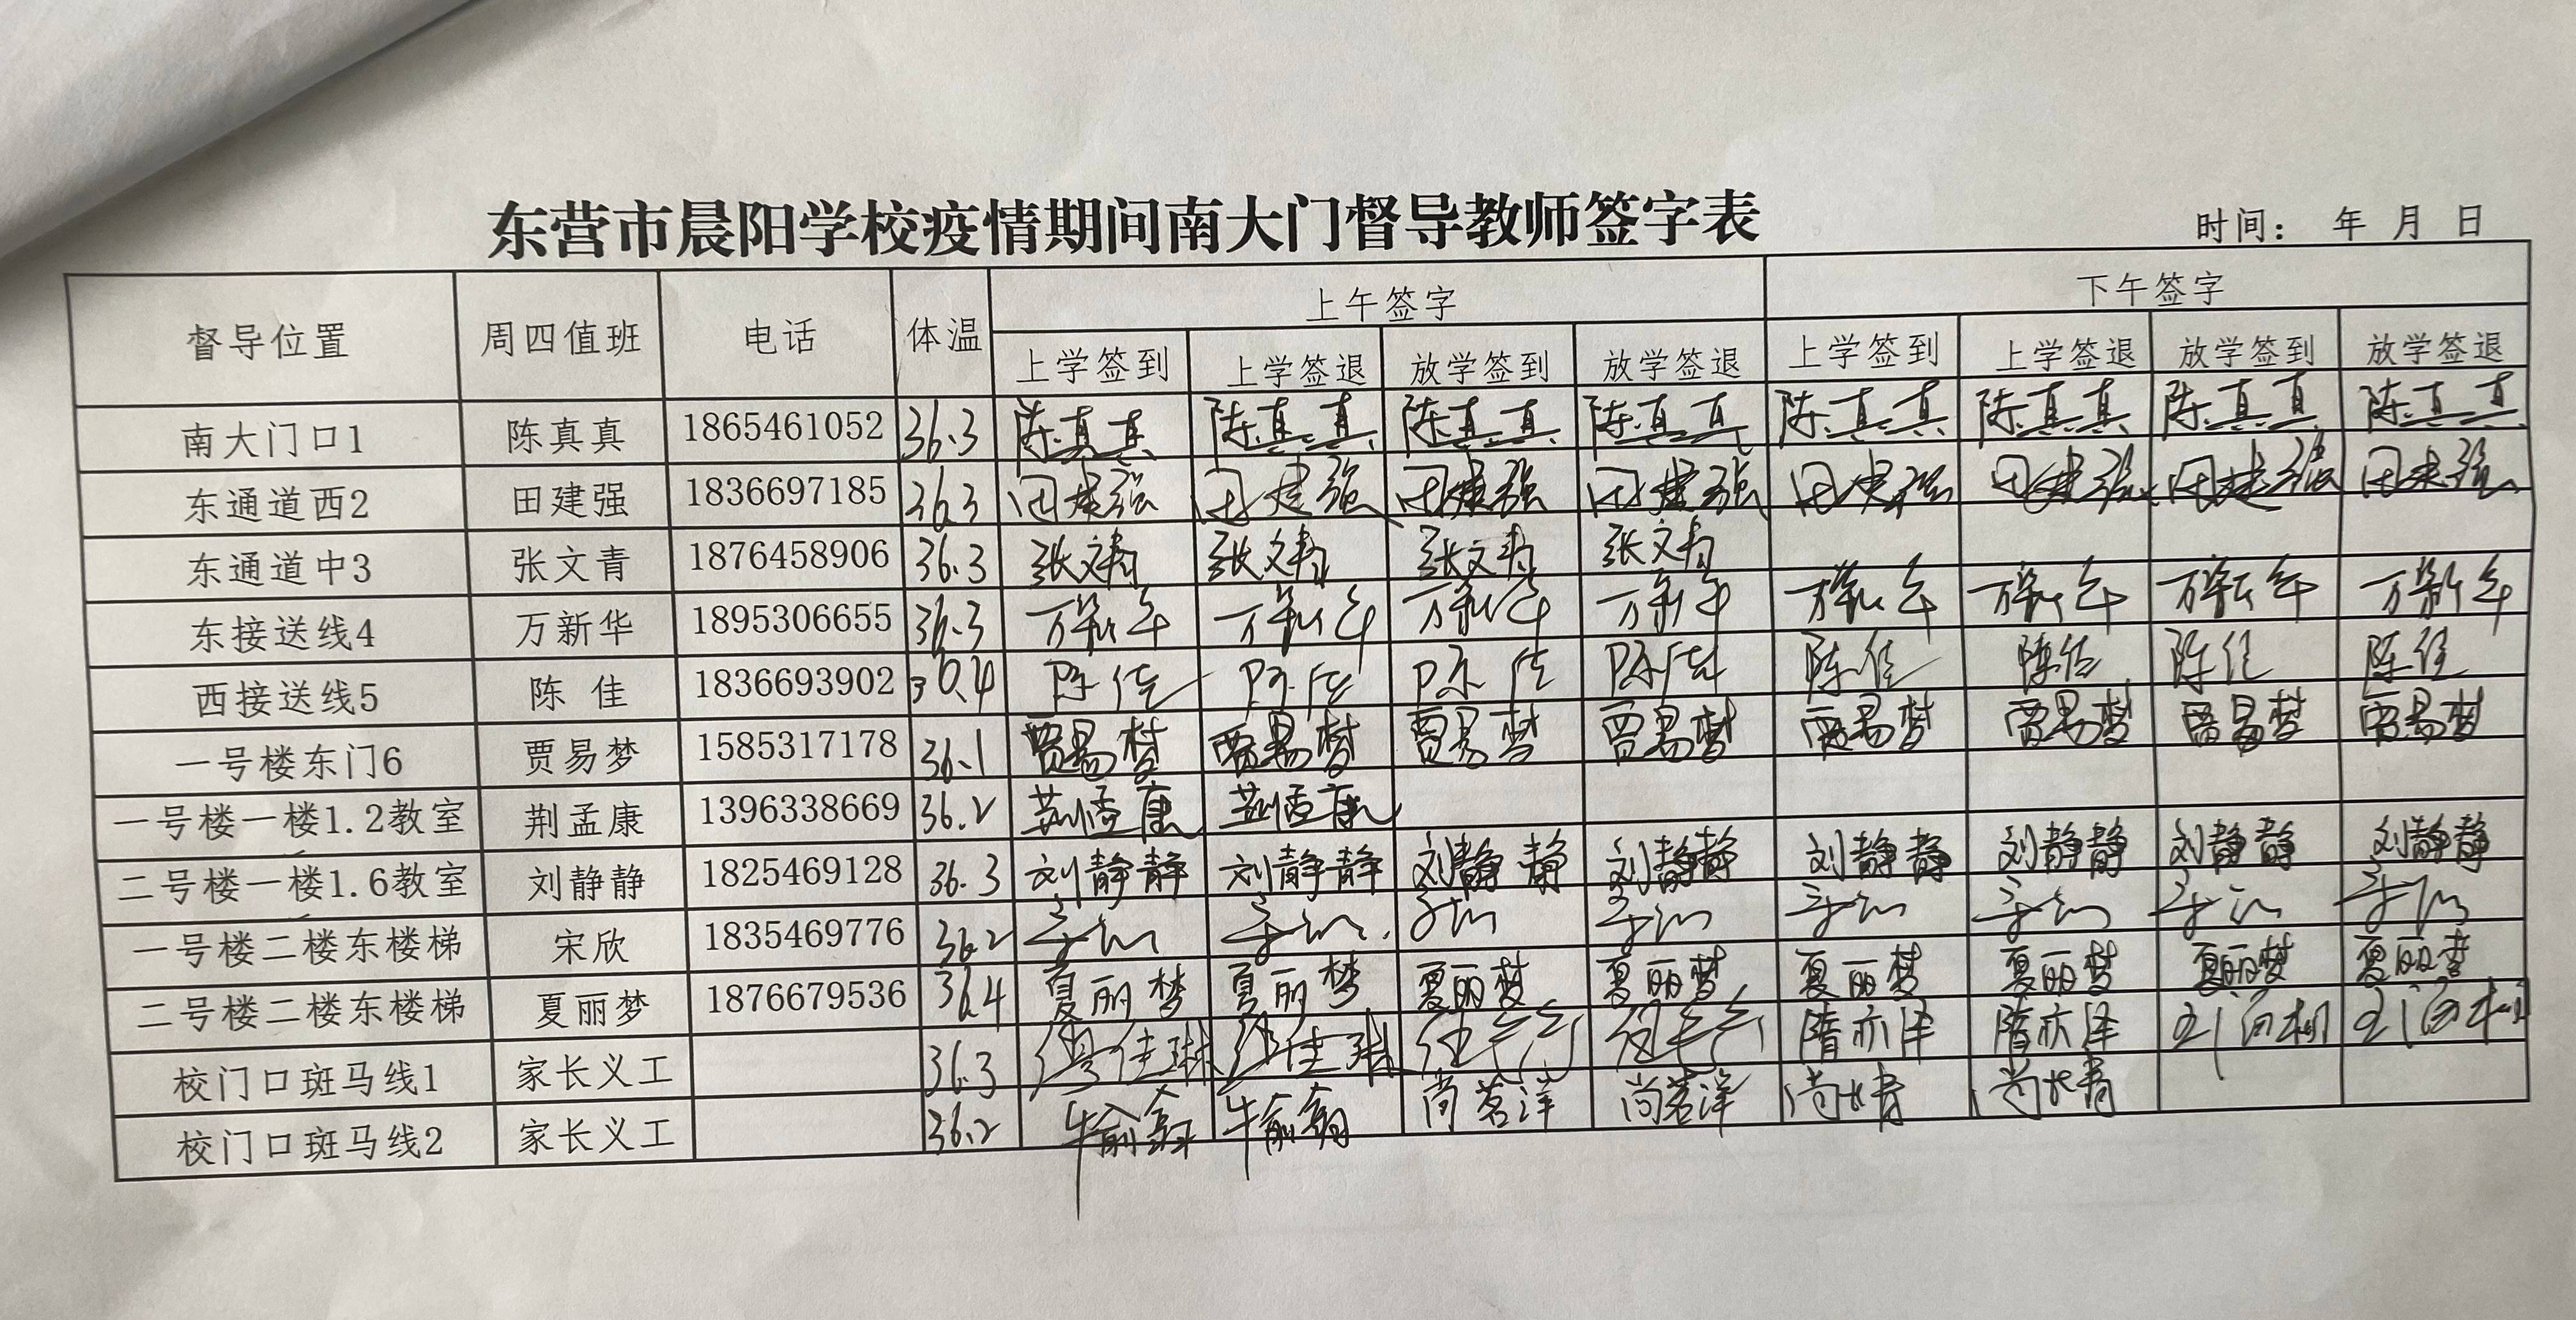 东营市晨阳学校疫情期间南大门督导教师签字表
时间： 年 月 日
督导位置 周四值班 电话 体温 上午签字 下午签字
上学签到 上学签退 放学签到 放学签退 上学签到 上学签退 放学签到 放学签退
南大门口1 陈真真 1865461052 36.3 陈真真 陈真真 陈真真 陈真真 陈真真 陈真真 陈真真 陈真真
东通道西2 田建强 1836697185 36.3 田建强 田建强 田建强 田建强 田建强 田建强 田建强 田建强
东通道中3 张文青 1876458906 36.3 张文青 张文青 张文青 张文青
东接送线4 万新华 1895306655 36.3 万新华 万新华 万新华 万新华 万新华 万新华 万新华 万新华
西接送线5 陈 佳 1836693902 36.4 陈佳 陈佳 陈佳 陈佳 陈佳 陈佳 陈佳 陈佳
一号楼东门6 贾易梦 1585317178 36.1 贾易梦 贾易梦 贾易梦 贾易梦 贾易梦 贾易梦 贾易梦 贾易梦
一号楼一楼1.2教室 荆孟康 1396338669 36.2 荆孟康 荆孟康
二号楼一楼1.6教室 刘静静 1825469128 36.3 刘静静 刘静静 刘静静 刘静静 刘静静 刘静静 刘静静 刘静静
一号楼二楼东楼梯 宋欣 1835469776 36.2 宋欣 宋欣 宋欣 宋欣 宋欣 宋欣 宋欣 宋欣
二号楼二楼东楼梯 夏丽梦 1876679536 36.4 夏丽梦 夏丽梦 夏丽梦 夏丽梦 夏丽梦 夏丽梦 夏丽梦 夏丽梦
校门口斑马线1 家长义工 36.3 隋亦泽 隋亦泽
校门口斑马线2 家长义工 36.2 尚茗洋 尚茗洋